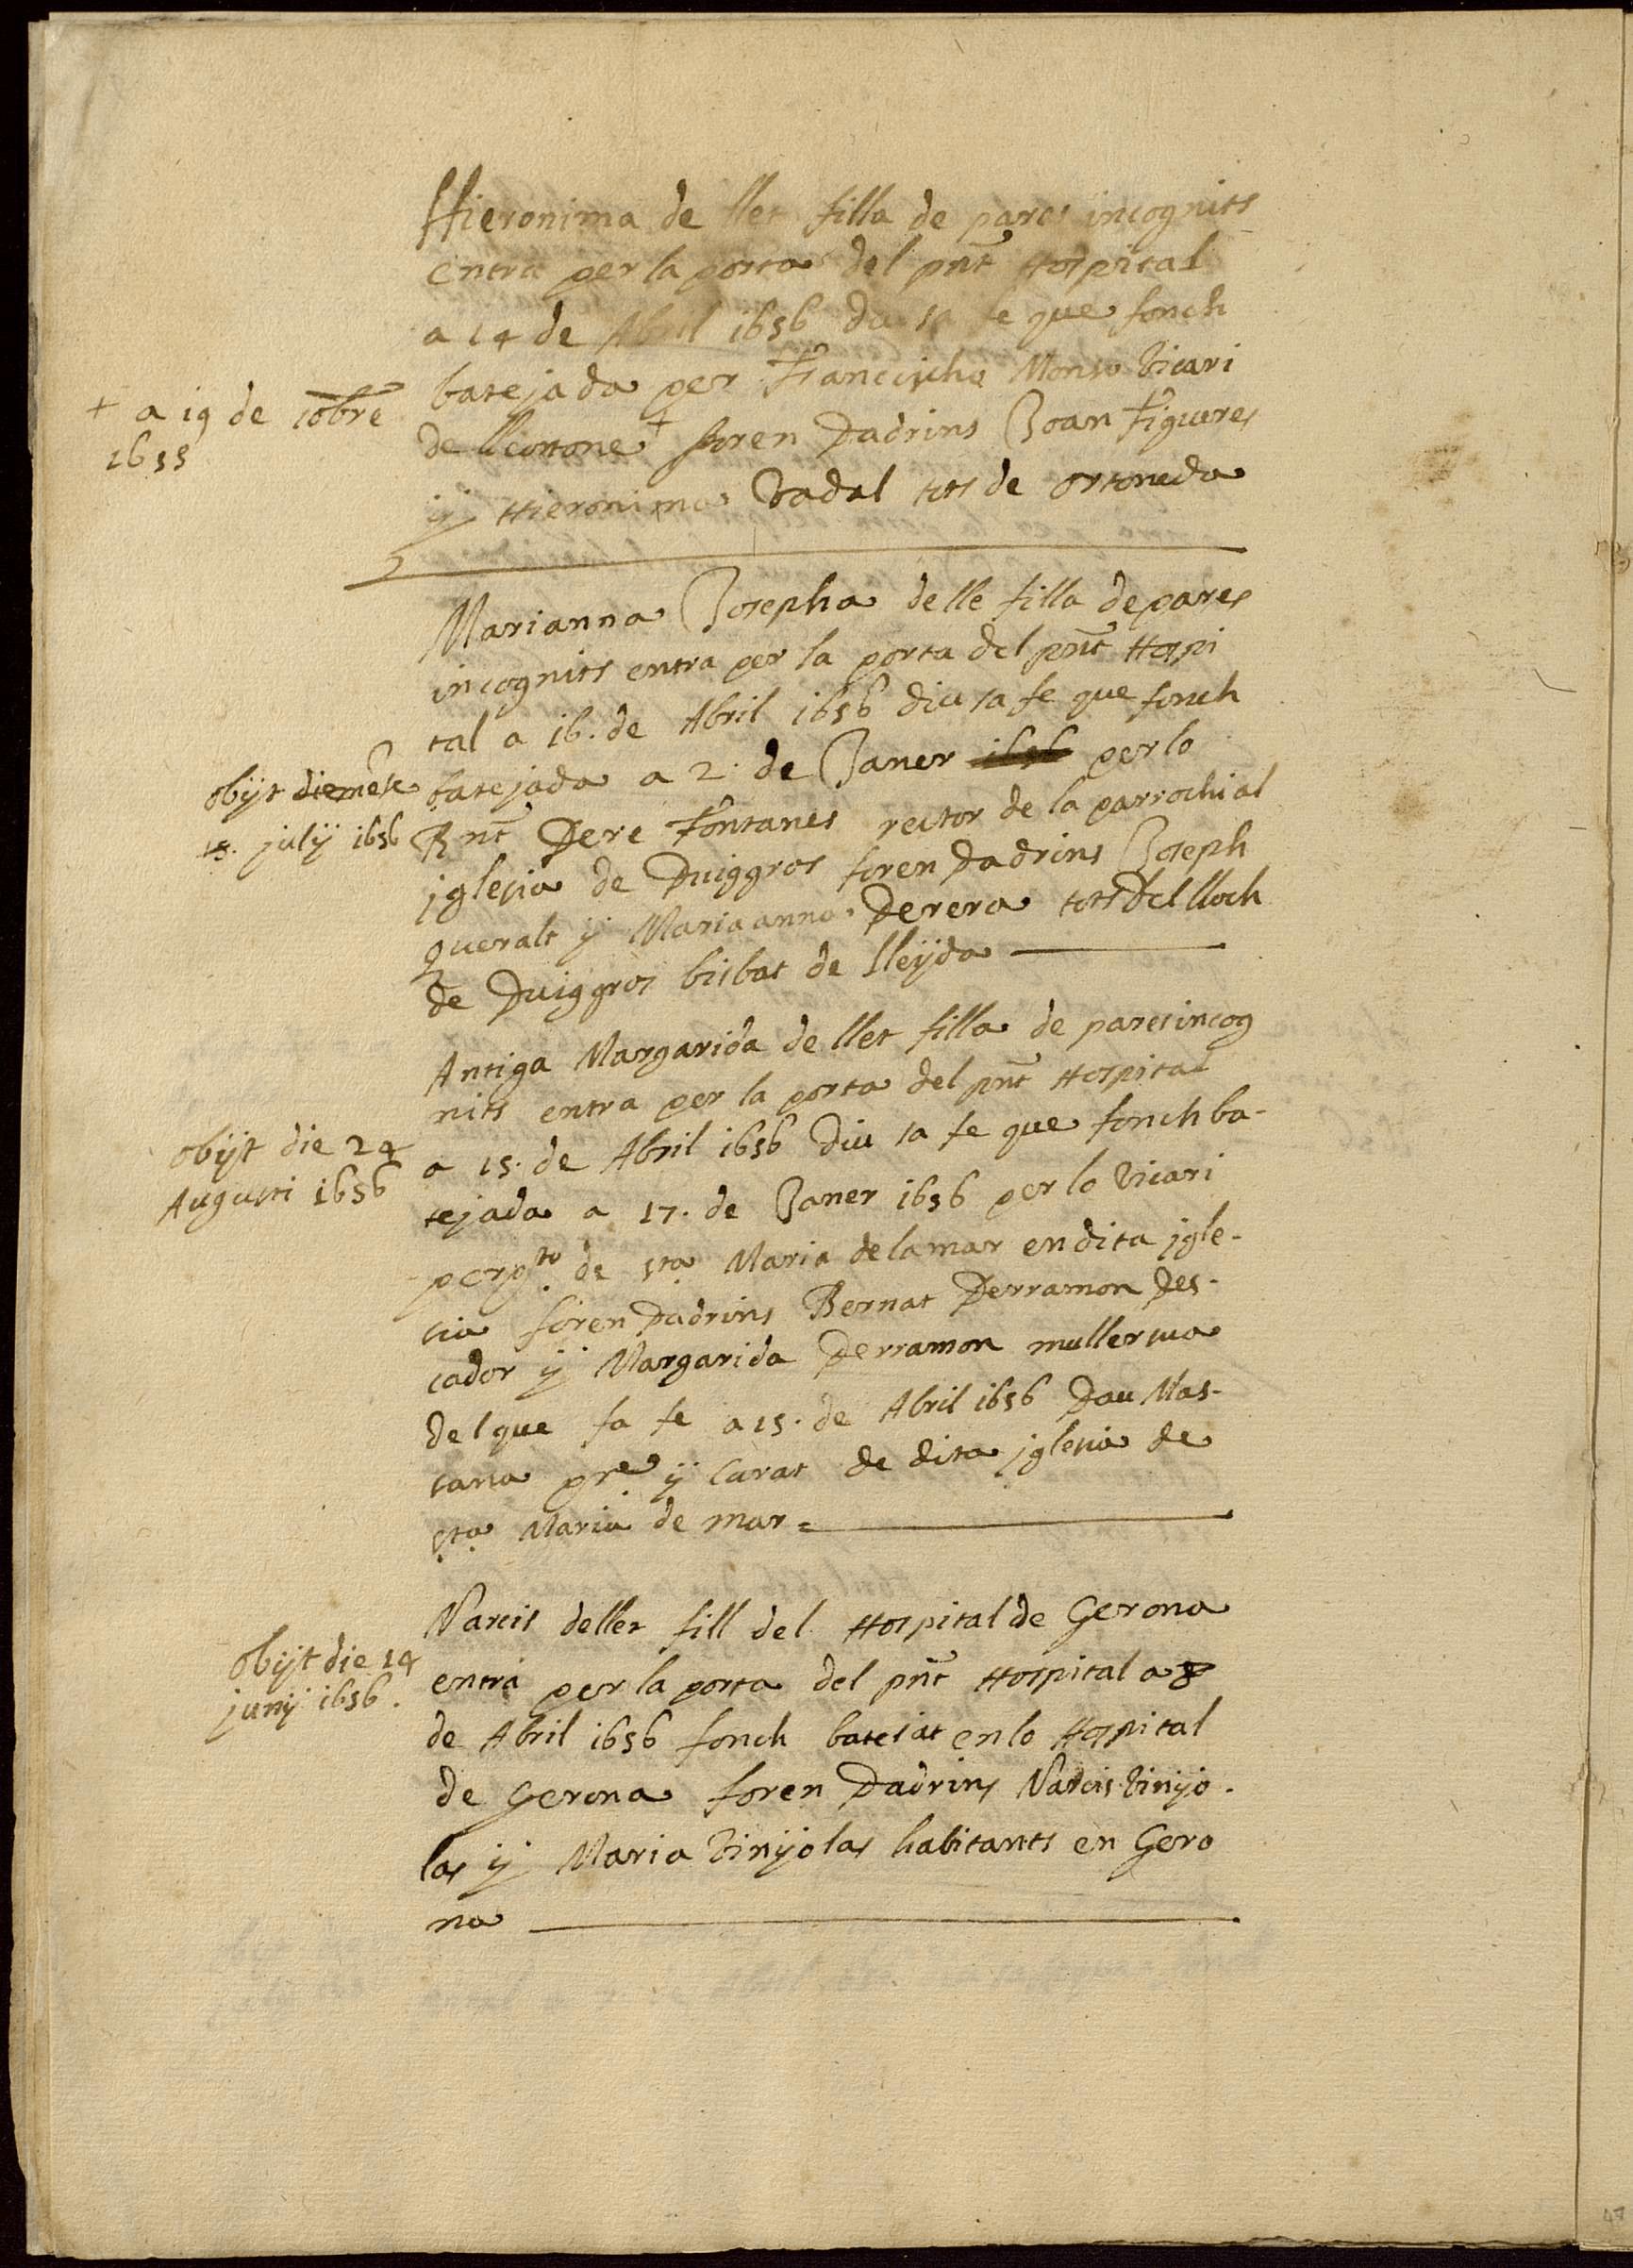 Hieronima de llet filla de pares incognits
entra per la porta del pñt Hospital
a 14 de Abril 1656 diu sa fe que fonch
batejada per Vicari
+ a 19 de 10bre
1655
de foren Padrins Joan Figueres
ÿ Hieronima Vadal tots de Ortoneda
Marianna Josepha de lle filla de pares
incognits entra per la porta del pñt Hospi
tal a 16. de Abril 1656 diu sa fe que fonch
batejada a 2. de Janer 1656 per lo
Rnt Pere Fontanes rector de la parrochial
iglesia de Puiggros foren Padrins Joseph
queralt ÿ Maria anna Perera tots del lloch
de Puiggros bisbat de lleÿda
obijt die
15. julÿ 1656
Antiga Margarida de llet filla de pares incog
nits entra per la porta del pñt Hospital
a 15. de Abril 1656 diu sa fe que fonch ba-
tejada a 17. de Janer 1656 per lo Vicari
perpto. de sta Maria de la mar en dita jgle-
sia foren Padrins Bernat Perramon Pes-
cador ÿ Margarida Perramon muller sua
del que fa fe a 15. de Abril 1656 Pau Mas-
sana pre ÿ Curat de dita jglesia de
sta Maria de mar =
obijt die 24
Augusti 1656
Narcis de llet fill del Hospital de Gerona
entrà per la porta del pñt Hospital a 8
de Abril 1656 fonch batejat en lo Hospital
de Gerona foren Padrins Narcis Vinÿo-
las ÿ Maria Vinÿolas habitants en Gero
na
obijt die 14
junÿ 1656.
47